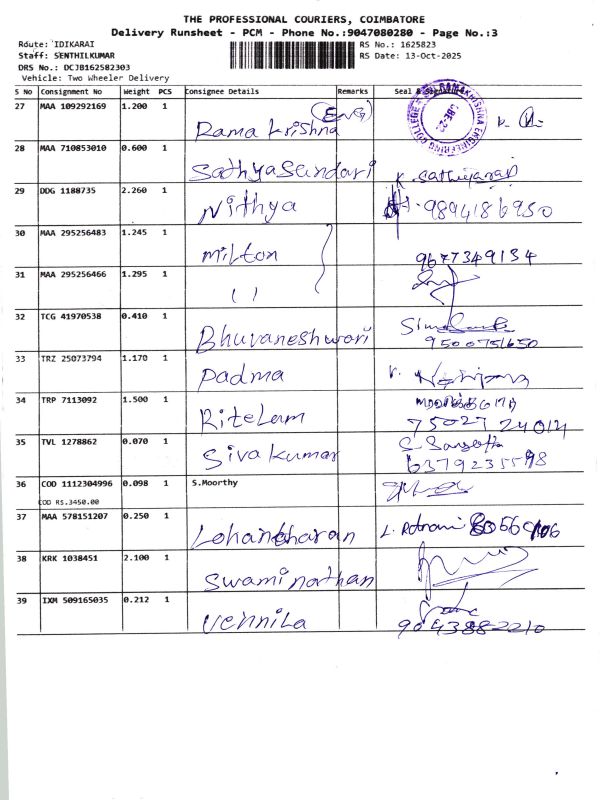 THE PROFESSIONAL COURIERS, COIMBATORE
Delivery Runsheet - PCM - Phone No.:9047080280 - Page No.:3
Route: IDIKARAI RS No.: 1625823
Staff: SENTHILKUMAR RS Date: 13-Oct-2025
DRS No.: DCJB162582303
Vehicle: Two Wheeler Delivery
S No Consignment No Weight PCS Consignee Details Remarks Seal &
27 MAA 109292169 1.200 1 Rama Krishna (ENG)
28 MAA 710853010 0.600 1 Sathyasundari K. Sathiyaraj
29 DDG 1188735 2.260 1 Nithya 9894186950
30 MAA 295256483 1.245 1 Milton 9677349134
31 MAA 295256466 1.295 1 ( )
32 TCG 41970538 0.410 1 Bhuvaneshwari 9500751650
33 TRZ 25073794 1.170 1 Padma
34 TRP 7113092 1.500 1 Ritelam 75027 24014
35 TVL 1278862 0.070 1 Sivakumar 6379235598
36 COD 1112304996 0.098 1 S.Moorthy
COD RS.3450.00
37 MAA 578151207 0.250 1 Lohandharan
38 KRK 1038451 2.100 1 Swaminathan
39 IXM 509165035 0.212 1 Vennila 9043882210